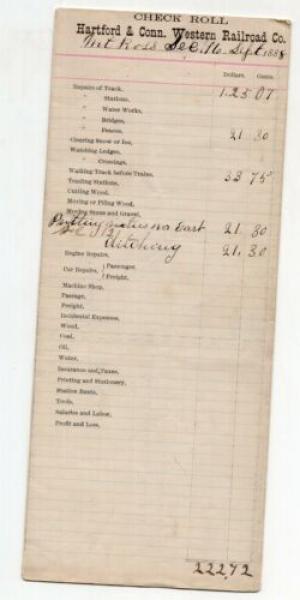 CHECK ROLL
Hartford & Conn. Western Railroad Co.
Sec. 16. Sept 1888
Dollars. Cents.
Repairs of Track, 125 07
" Stations,
" Water Works,
" Bridges,
" Fences, 21 30
Clearing Snow or Ice,
Watching Ledges,
" Crossings,
Walking Track before Trains, 33 75
Tending Stations,
Cutting Wood,
Moving or Piling Wood,
Moving Stone and Gravel,
Putting in East 21 30
Sec 12
Ditching 21 30
Engine Repairs,
Car Repairs, { Passenger,
Freight,
Machine Shop,
Passage,
Freight,
Incidental Expenses,
Wood,
Coal,
Oil,
Water,
Insurance and Taxes,
Printing and Stationery,
Station Rents,
Tools,
Salaries and Labor,
Profit and Loss,
222,72